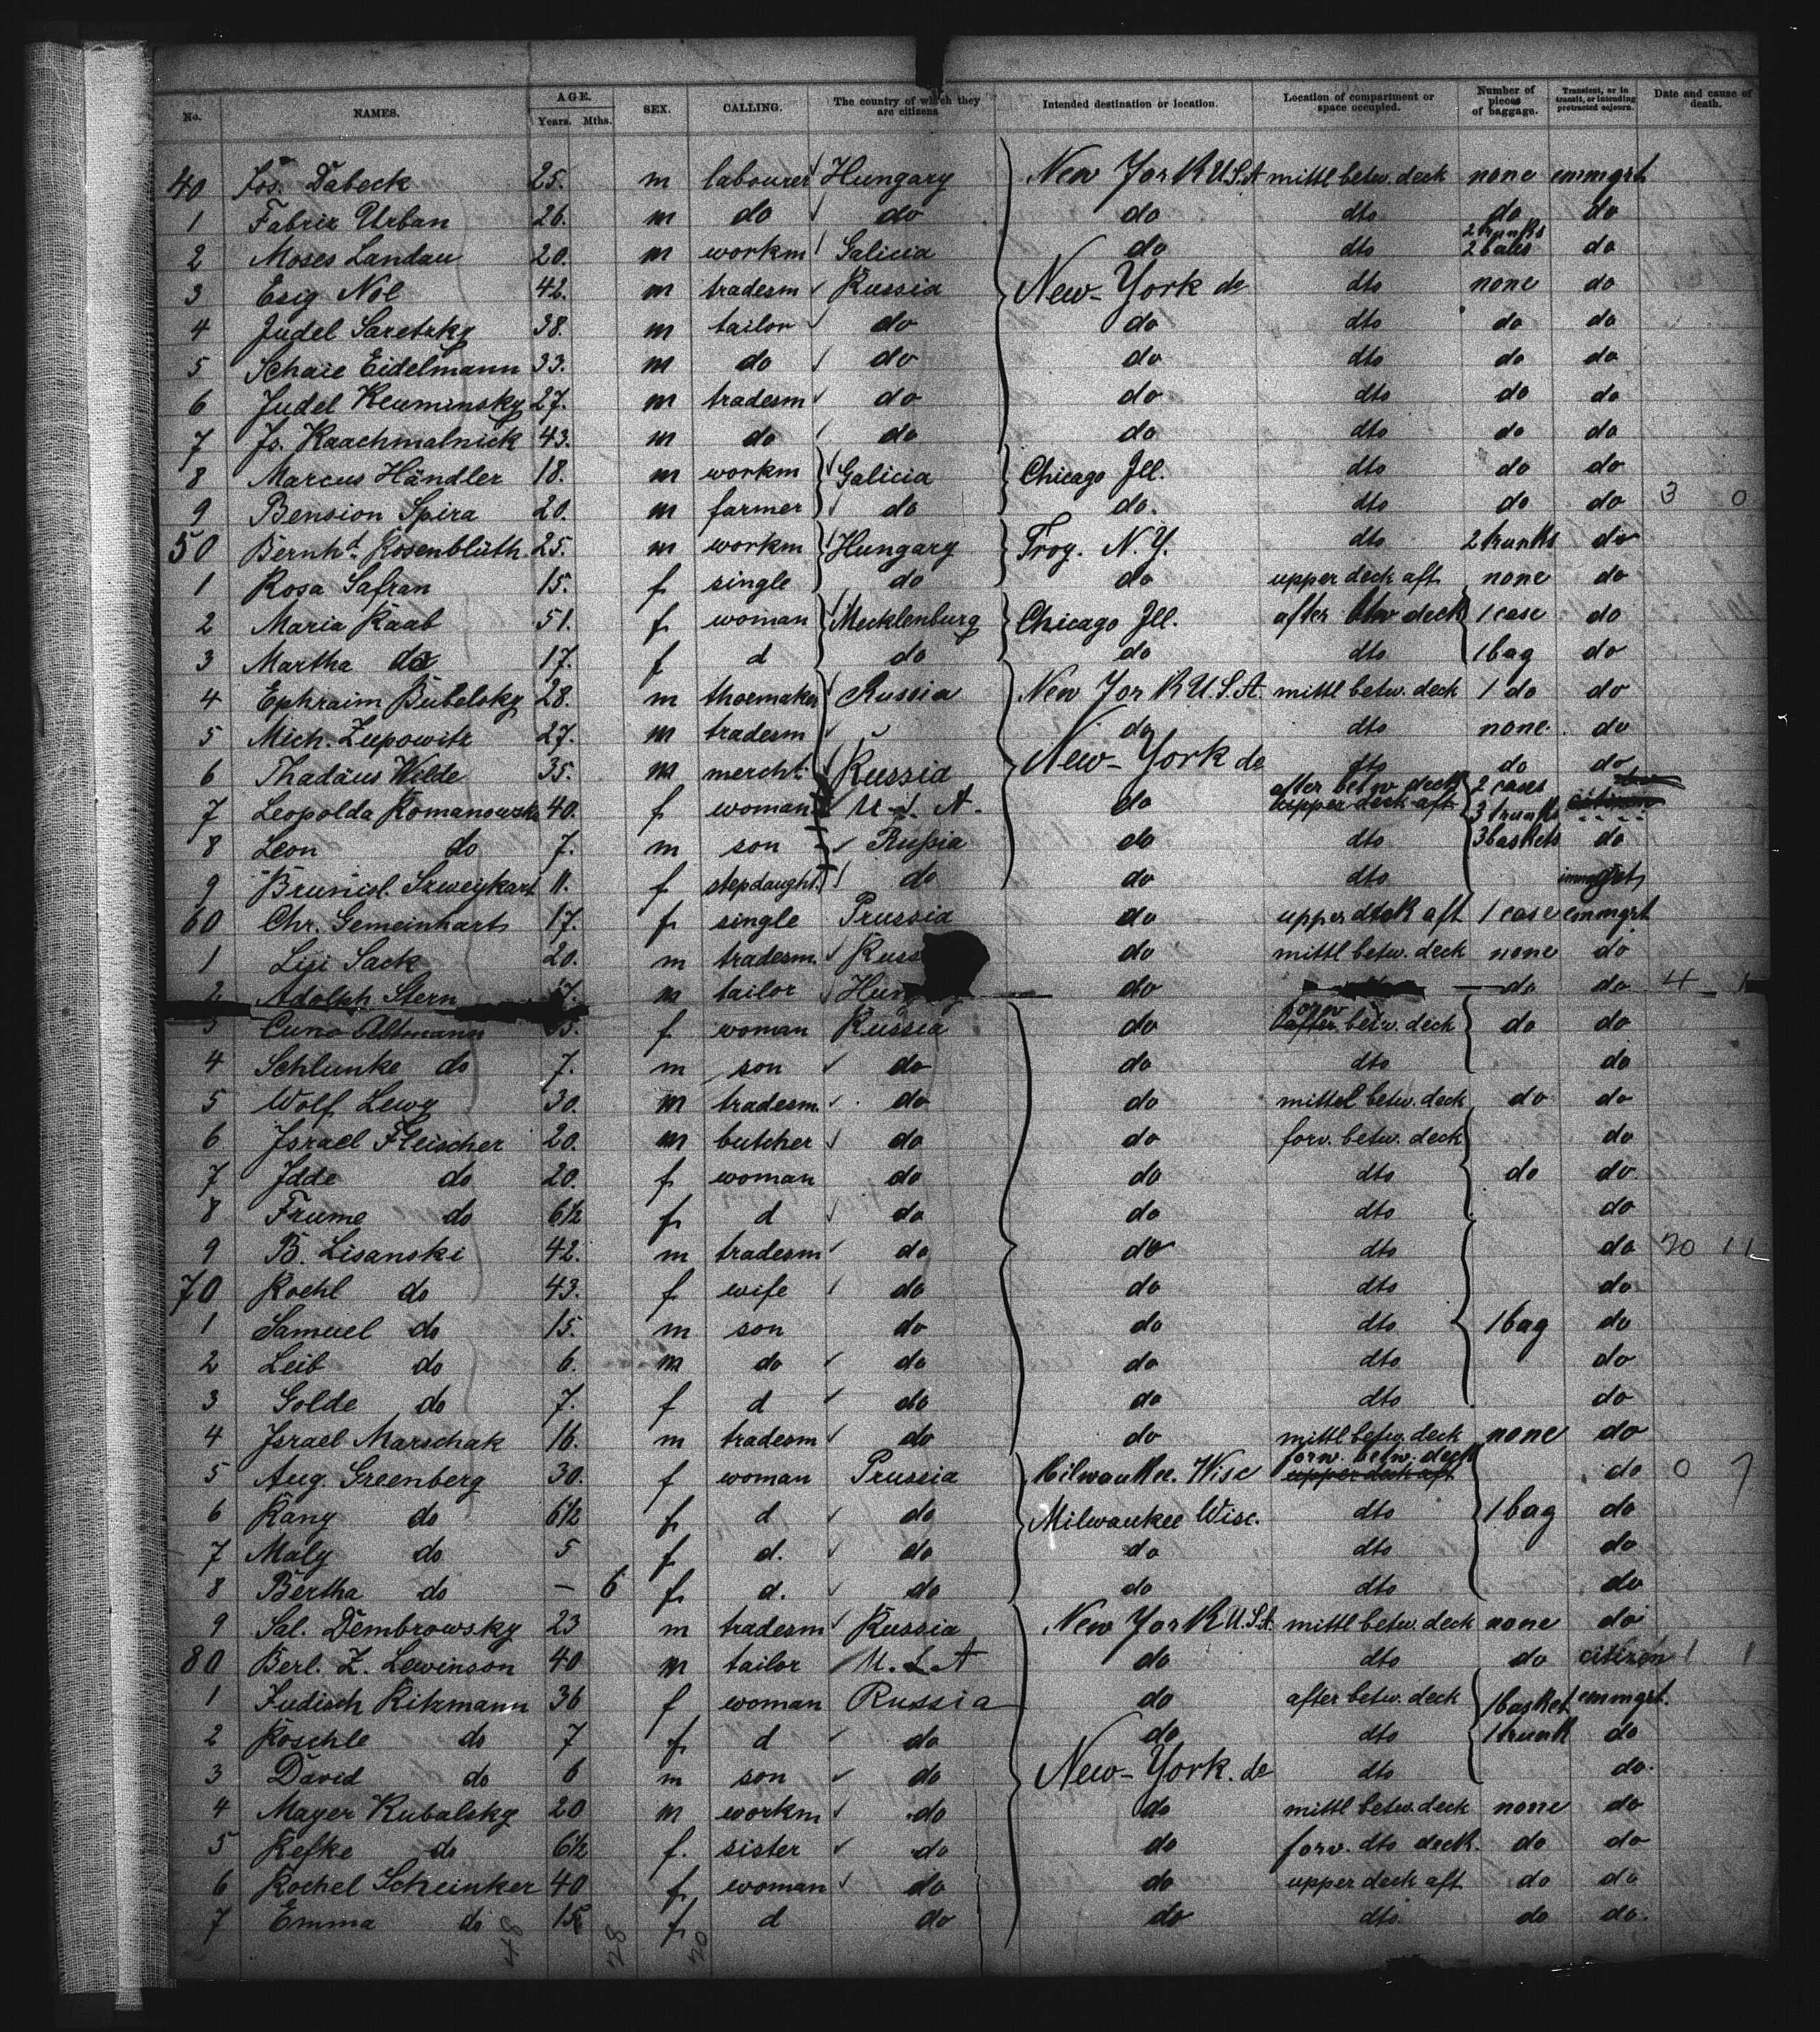 No. NAMES. AGE. Years. Mths. SEX. CALLING. The country of which they are citizens Intended destination or location. Location of compartment or space occupied. Number of pieces of baggage. Transient, or in transit, or intending protracted sojourn. Date and cause of death.
40 Jos. Dabeck 25. m labourer Hungary New York U.S.A mittl betw. deck none emmgrt
1 Fabrix Urban 26. m do do do dto do do
2 Moses Landau 20. m workm Galicia do dto 2 trunks 2 bales do
3 Esig Nol 42. m tradesm Russia New-York do dto none do
4 Judel Saretzky 38. m tailor do do dto do do
5 Schaie Eidelmann 33. m do do do dto do do
6 Judel Keuminsky 27. m tradesm do do dto do do
7 Js. Kaachmalnick 43. m do do do dto do do
8 Marcus Händler 18. m workm Galicia Chicago Ill. dto do do
9 Bension Spira 20. m farmer do do. dto do do 3 0
50 Bernhd. Rosenblüth 25. m workm Hungary Troy. N.Y. dto 2 trunks do
1 Rosa Safran 15. f single do do upper deck aft none do
2 Maria Raab 51. f woman Mecklenburg Chicago Ill. after btw deck 1 case do
3 Martha do 17. f d do do dto 1 bag do
4 Ephraim Bubelsky 28. m shoemaker Russia New York U.S.A mittl betw. deck 1 do do
5 Mich. Zupowitz 27. m tradesm do dto none. do
6 Thadäus Welde 35. m mercht. Russia New-York do dto do do
7 Leopolda Romanowska 40. f woman U.S.A. do after betw deck upper deck aft 2 cases 3 trunks citizen
8 Leon do 7. m son Russia do dto 3 baskets do
9 Brunisl. Szweykart 11. f stepdaught. do do dto immgrt
60 Chr. Gemeinharts 17. f single Prussia do upper deck aft 1 case emmgrt
1 Lisi Sack 20. m tradesm. Russ do mittl betw. deck none do
2 Adolph Stern 17. m tailor Hun do do do 4 1
3 Cuno Altmann f woman Russia do forw after betw. deck do do
4 Schlunke do 7. m son do do dto do
5 Wolf Lewy 30. m tradesm. do do mittel betw. deck do do
6 Israel Fleischer 20. m butcher do do forv. betw. deck do
7 Idde do 20. f woman do do dto do do
8 Frume do 6½ f d do do dto do
9 B. Lisanski 42. m tradesm do do dto do 20 11
70 Rochl do 43. f wife do do dto do
1 Samuel do 15. m son do do dto 1 bag do
2 Leib do 6. m do do do dto do
3 Golde do 7. f d do do dto do
4 Israel Marschak 16. m tradesm do do mittl betw. deck none do
5 Aug. Greenberg 30. f woman Prussia Milwaukee. Wisc forw. betw. deck upper deck aft do 0 7
6 Rany do 6½ f d do Milwaukee Wisc. dto 1 bag do
7 Maly do 5 f d. do do dto do
8 Bertha do – 6 f d. do do dto do
9 Sal. Dembrowsky 23 m tradesm Russia New York U.S.A. mittl betw. deck none do
80 Berl. Z. Lewinson 40 m tailor U.S.A do dto do citizen 1 1
1 Judisch Ritzmann 36 f woman Russia do after betw. deck 1 basket emmgrt.
2 Roschle do 7 f d do do dto 1 trunk do
3 David do 6 m son do New-York. do dto do.
4 Mayer Kubalsky 20 m workm do do mittl betw. deck none do
5 Refke do 6½ f. sister do do forv. dto deck. do do
6 Rochel Scheinker 40 f woman do do upper deck aft do do
7 Emma do 15 f d do do dto. do do.
48 28 20